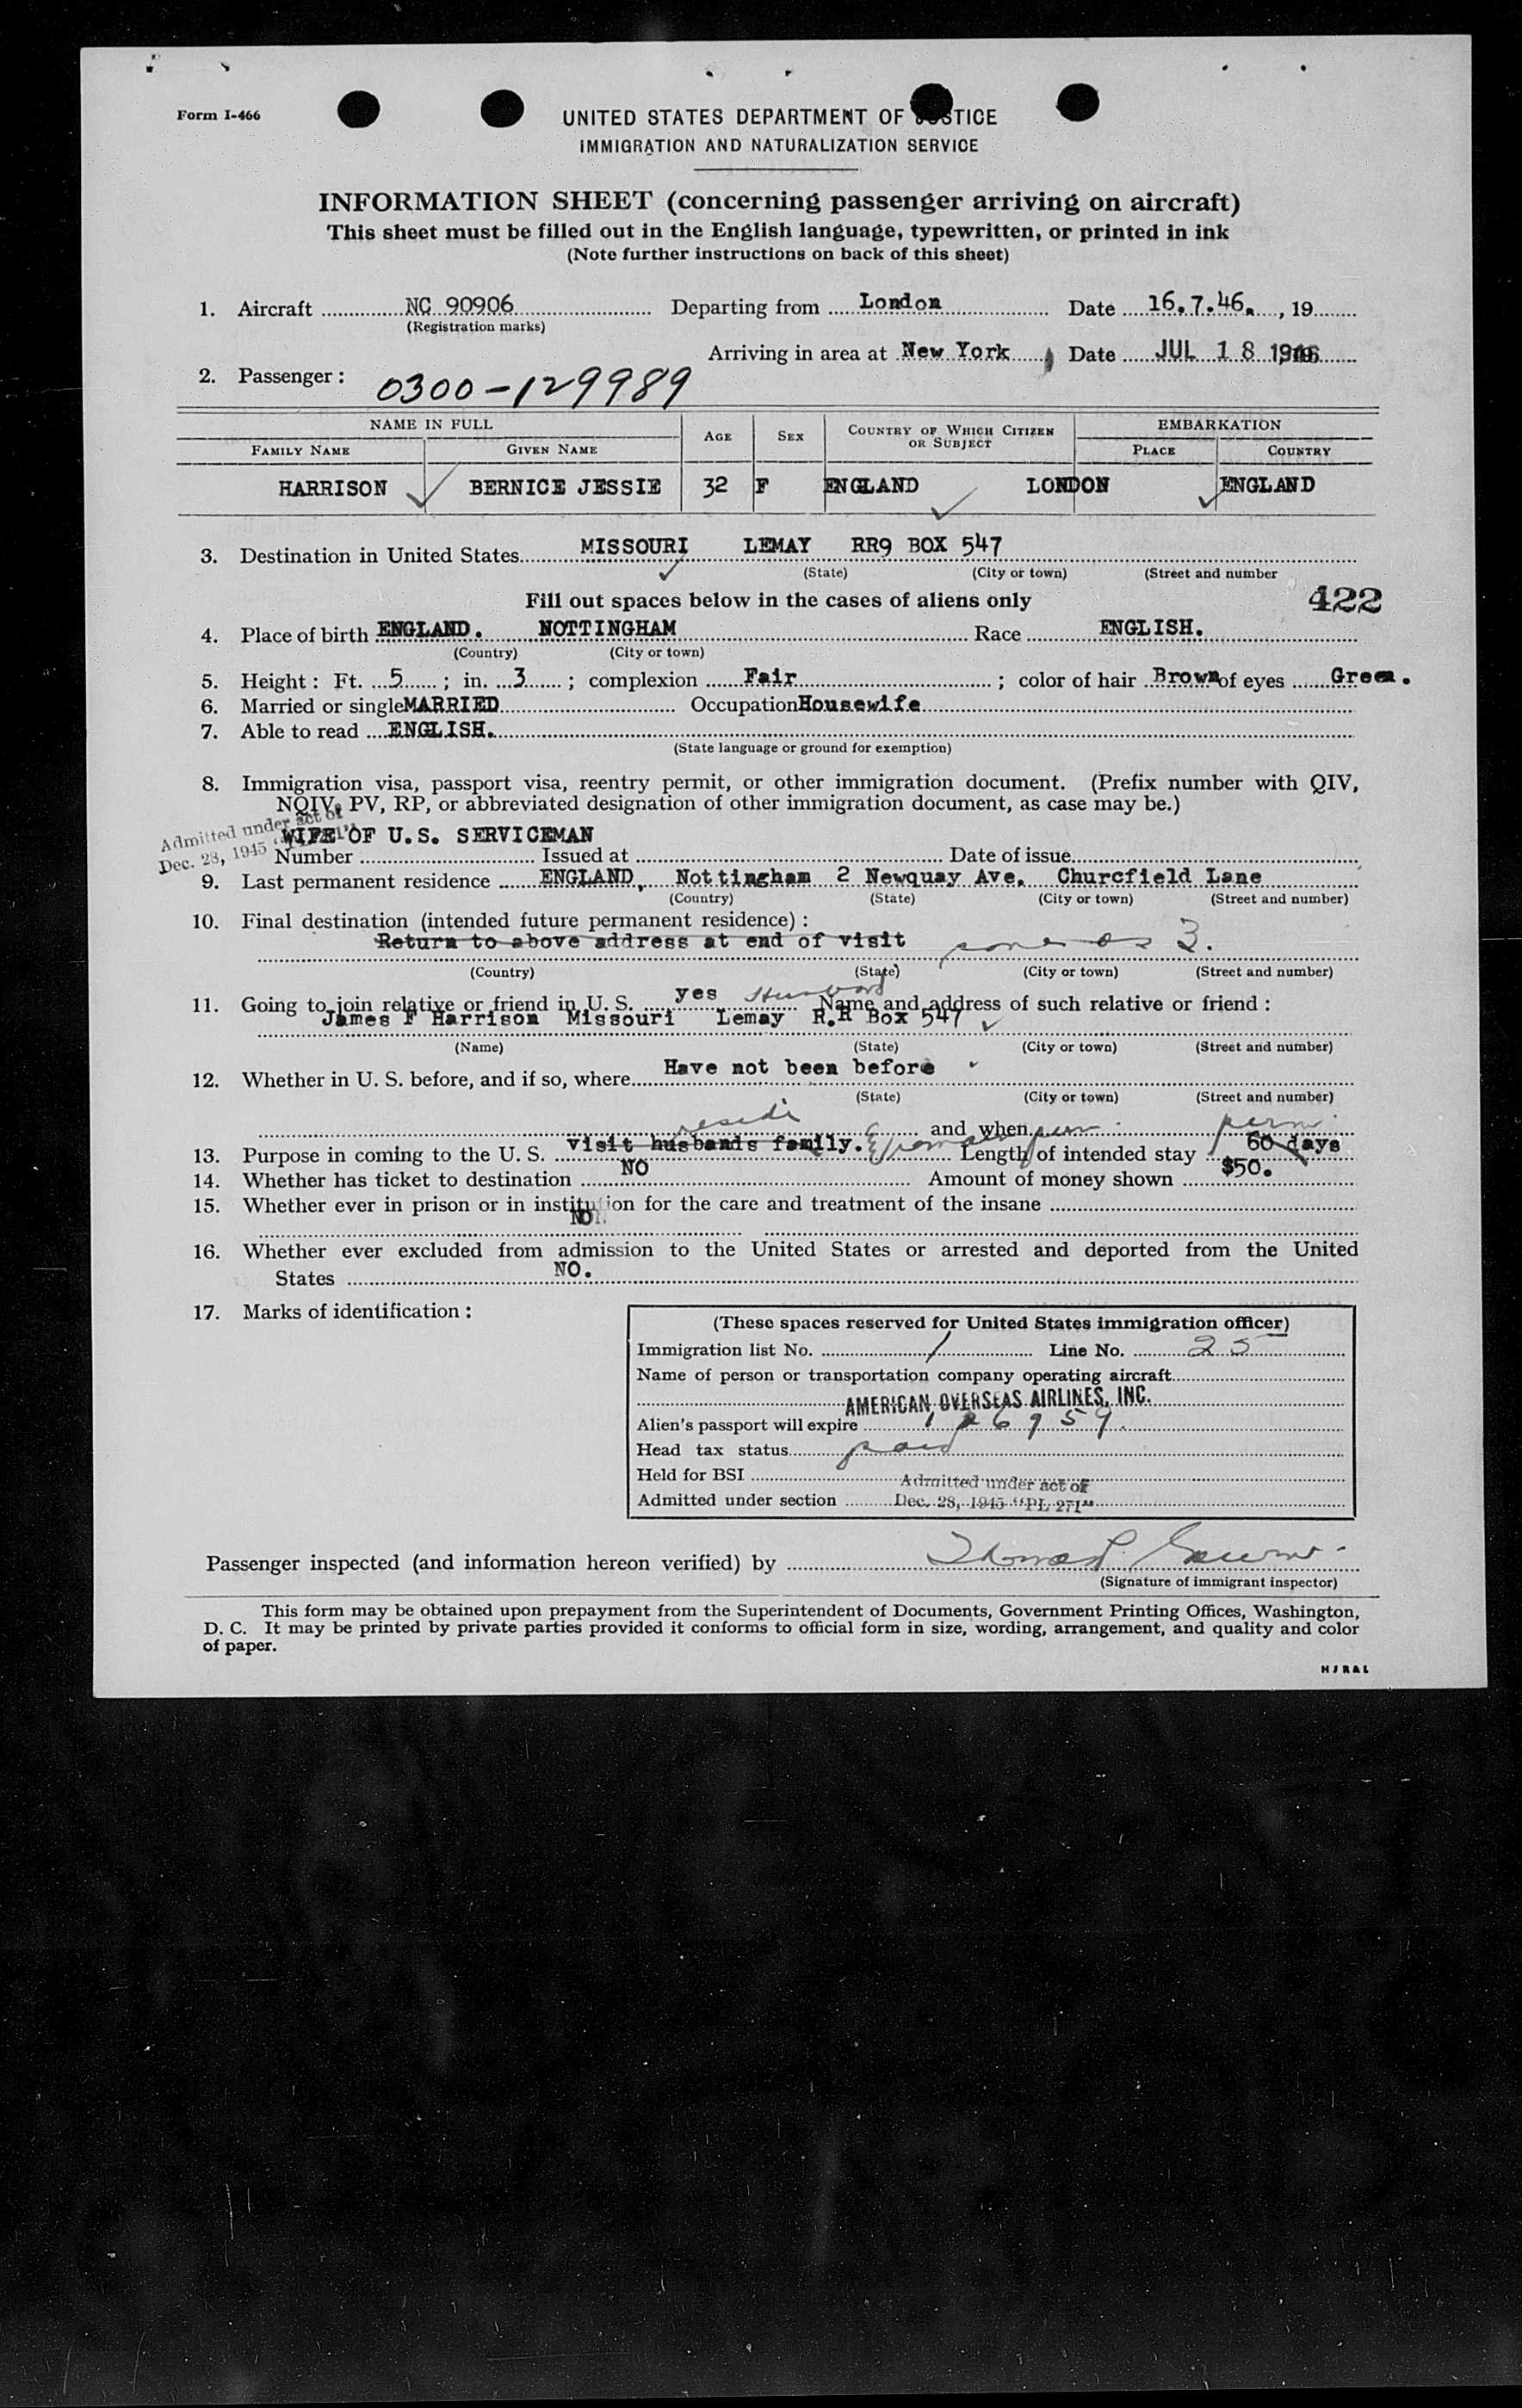 Form I-466
UNITED STATES DEPARTMENT OF JUSTICE
IMMIGRATION AND NATURALIZATION SERVICE
INFORMATION SHEET (concerning passenger arriving on aircraft)
This sheet must be filled out in the English language, typewritten, or printed in ink
(Note further instructions on back of this sheet)
1. Aircraft NC 90906 Departing from London Date 16.7.46. , 19
(Registration marks)
Arriving in area at New York , Date JUL 18 1946
2. Passenger : 0300-129989
NAME IN FULL AGE SEX COUNTRY OF WHICH CITIZEN OR SUBJECT EMBARKATION
FAMILY NAME GIVEN NAME PLACE COUNTRY
HARRISON BERNICE JESSIE 32 F ENGLAND LONDON ENGLAND
3. Destination in United States MISSOURI LEMAY RR9 BOX 547
(State) (City or town) (Street and number
Fill out spaces below in the cases of aliens only 422
4. Place of birth ENGLAND. NOTTINGHAM Race ENGLISH.
(Country) (City or town)
5. Height : Ft. 5 ; in. 3 ; complexion Fair ; color of hair Brown of eyes Green.
6. Married or single MARRIED Occupation Housewife
7. Able to read ENGLISH.
(State language or ground for exemption)
8. Immigration visa, passport visa, reentry permit, or other immigration document. (Prefix number with QIV,
NQIV, PV, RP, or abbreviated designation of other immigration document, as case may be.)
Admitted under act of
Dec. 28, 1945
WIFE OF U.S. SERVICEMAN
Number Issued at Date of issue
9. Last permanent residence ENGLAND, Nottingham 2 Newquay Ave. Churcfield Lane
(Country) (State) (City or town) (Street and number)
10. Final destination (intended future permanent residence) :
Return to above address at end of visit same as 3.
(Country) (State) (City or town) (Street and number)
11. Going to join relative or friend in U. S. yes Husband Name and address of such relative or friend :
James F Harrison Missouri Lemay R.R Box 547
(Name) (State) (City or town) (Street and number)
12. Whether in U. S. before, and if so, where Have not been before
(State) (City or town) (Street and number)
reside and when perm
13. Purpose in coming to the U. S. Visit husbands family. Length of intended stay 60 days
14. Whether has ticket to destination NO Amount of money shown $50.
15. Whether ever in prison or in institution for the care and treatment of the insane
NO
16. Whether ever excluded from admission to the United States or arrested and deported from the United
States NO.
17. Marks of identification :
(These spaces reserved for United States immigration officer)
Immigration list No. 1 Line No. 25
Name of person or transportation company operating aircraft
AMERICAN OVERSEAS AIRLINES, INC.
Alien's passport will expire
Head tax status paid
Held for BSI
Admitted under act of
Admitted under section Dec. 28, 1945 "PL 271"
Passenger inspected (and information hereon verified) by
(Signature of immigrant inspector)
This form may be obtained upon prepayment from the Superintendent of Documents, Government Printing Offices, Washington,
D. C. It may be printed by private parties provided it conforms to official form in size, wording, arrangement, and quality and color
of paper.
HJR&L